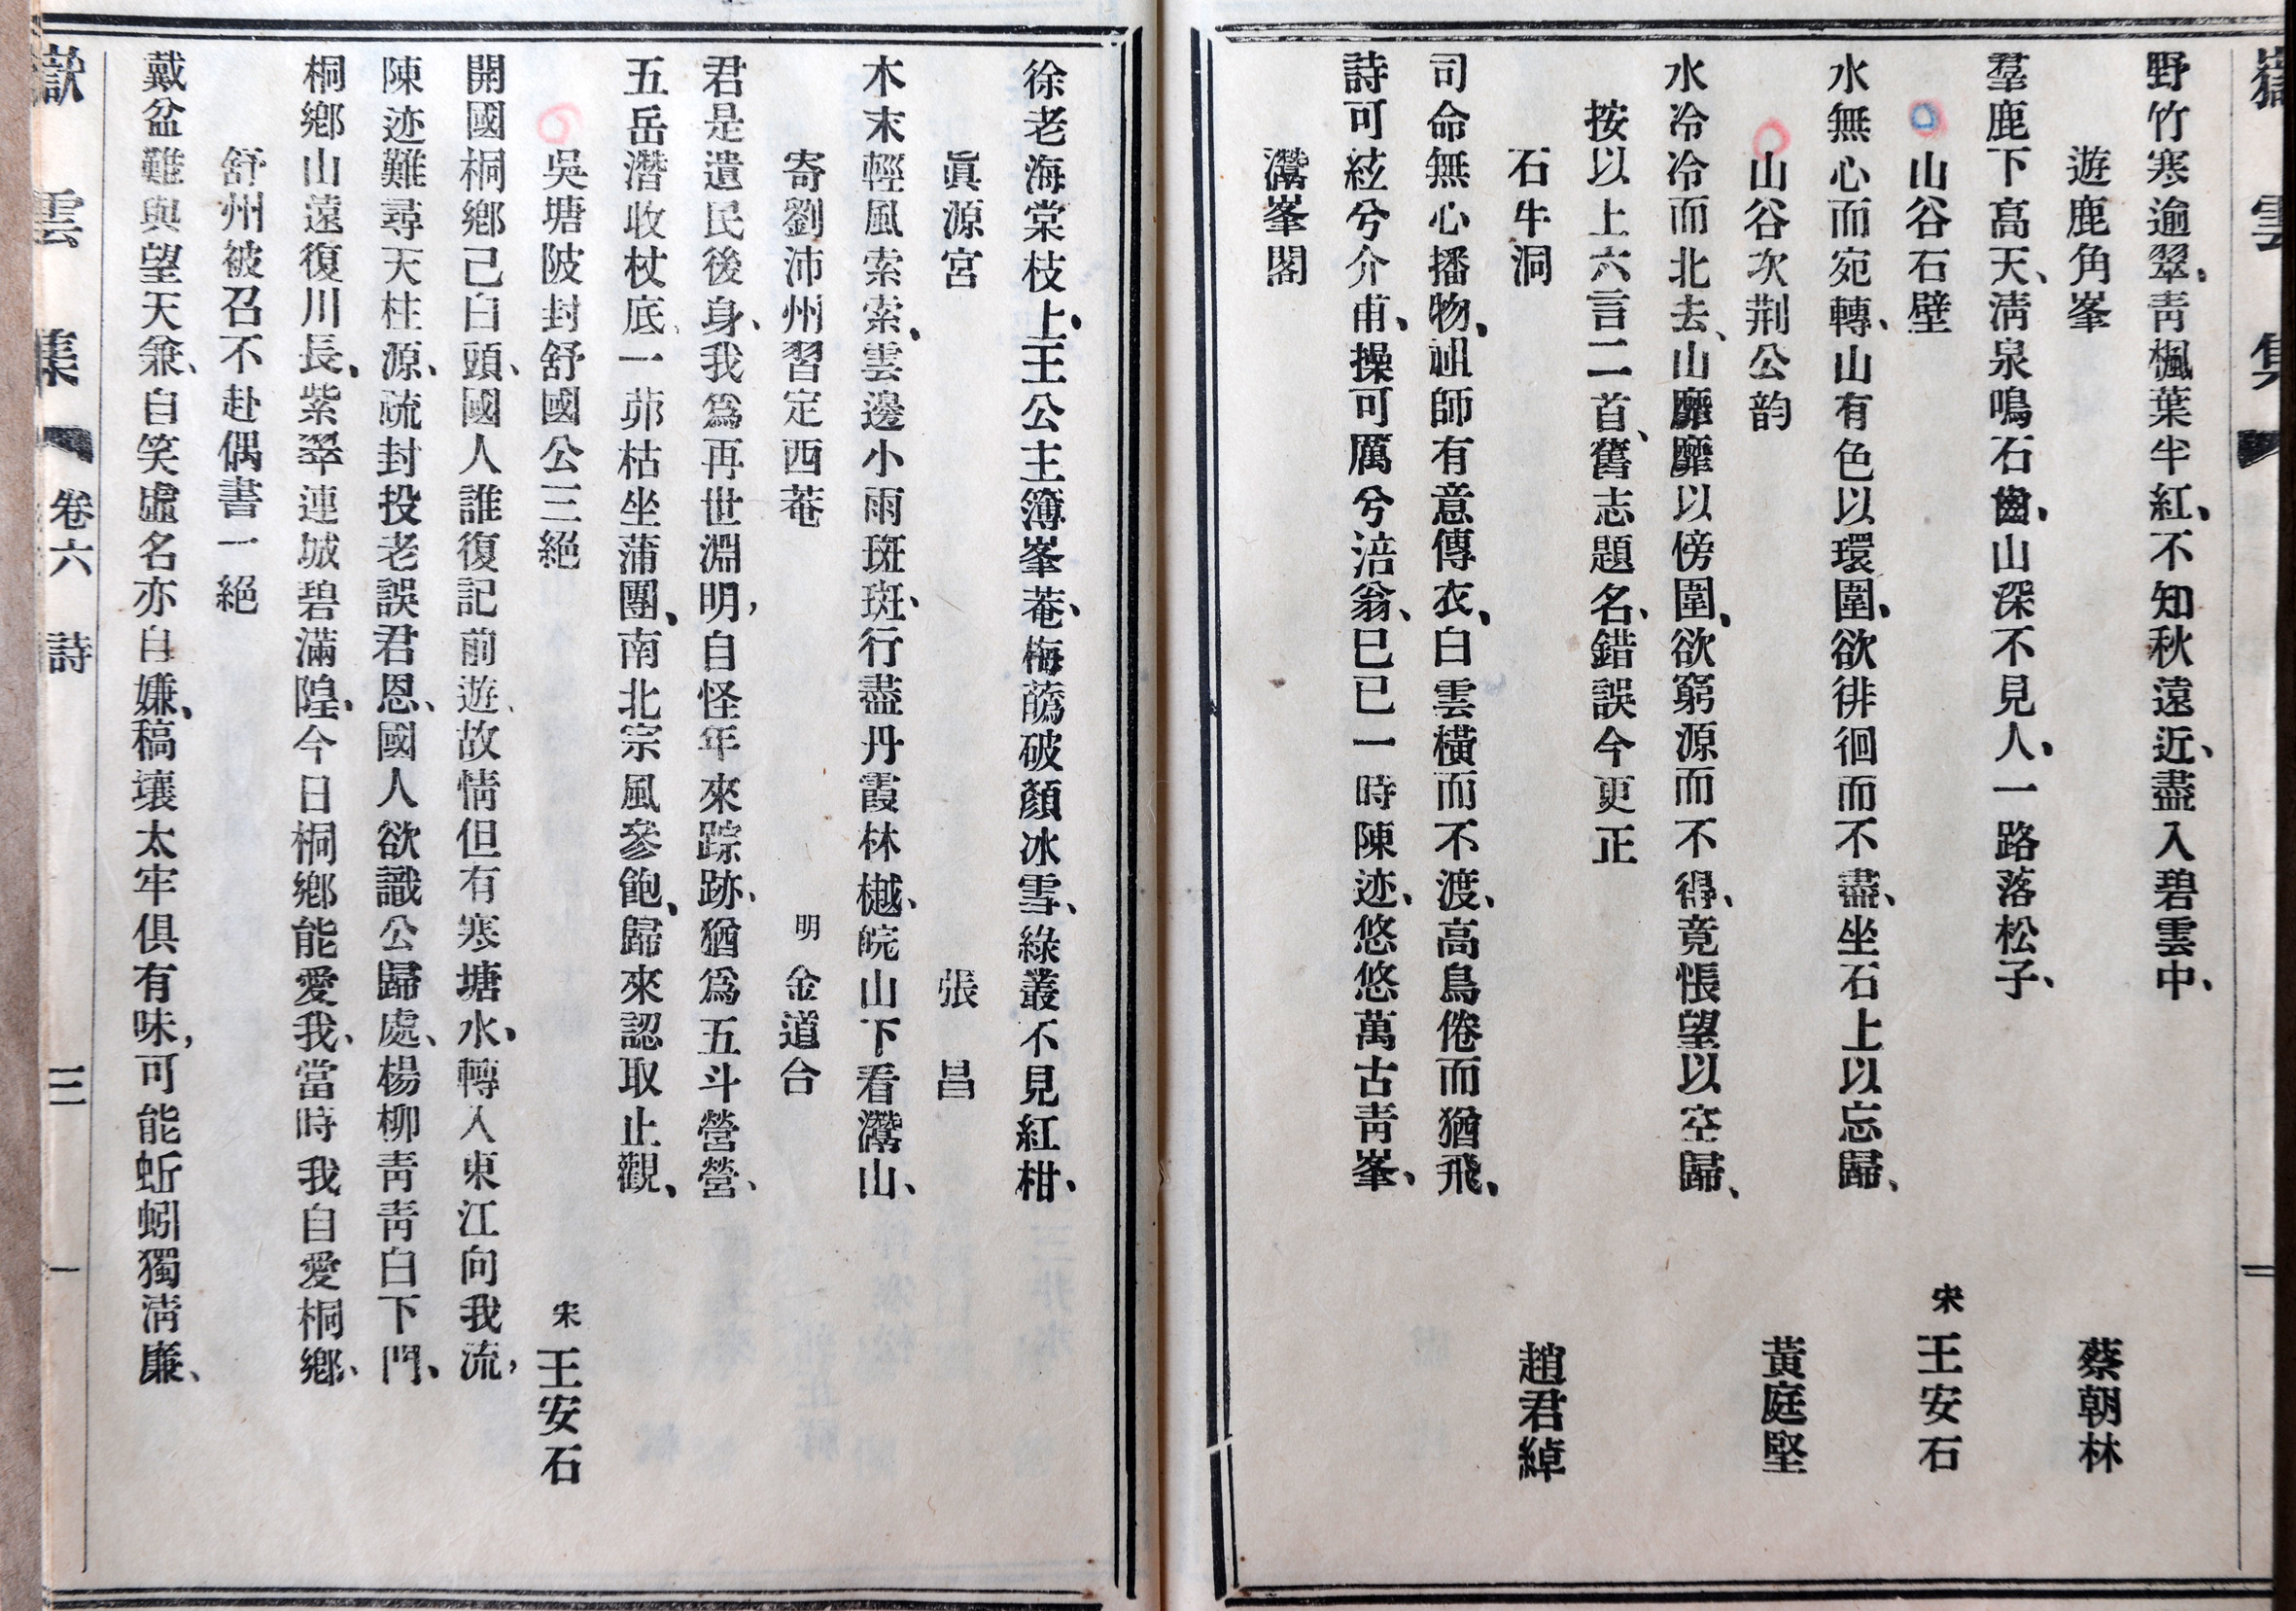 嶽雲集
野竹寒逾翠、靑楓葉半紅、不知秋遠近、盡入碧雲中、
遊鹿角峯 蔡朝林
羣鹿下高天、淸泉鳴石齒、山深不見人、一路落松子、
山谷石壁 宋 王安石
水無心而宛轉、山有色以環圍、欲徘徊而不盡、坐石上以忘歸、
山谷次荆公韵 黃庭堅
水冷冷而北去、山靡靡以傍圍、欲窮源而不得、竟悵望以空歸、
按以上六言二首、舊志題名、錯誤今更正
石牛洞 趙君綽
司命無心播物、祖師有意傳衣、白雲橫而不渡、高鳥倦而猶飛、
詩可絃兮介甫、操可厲兮涪翁、已已一時陳迹、悠悠萬古靑峯、
灊峯閣
徐老海棠枝上、王公主簿峯菴、梅蘤破顏冰雪、綠叢不見紅柑、
眞源宮 張昌
木末輕風索索、雲邊小雨斑斑、行盡丹霞林樾、皖山下看灊山、
寄劉沛州習定西菴 明 金道合
君是遺民後身、我爲再世淵明，自怪年來踪跡、猶爲五斗營營、
五岳潛收杖底、一茆枯坐蒲團、南北宗風參飽、歸來認取止觀、
吳塘陂封舒國公三絕 宋 王安石
開國桐鄉已白頭、國人誰復記前遊、故情但有寒塘水、轉入東江向我流，
陳迹難尋天柱源、疏封投老誤君恩、國人欲識公歸處、楊柳靑靑白下門、
桐鄉山遠復川長、紫翠連城碧滿隍、今日桐鄉能愛我、當時我自愛桐鄉、
舒州被召不赴偶書一絕
戴盆難與望天兼、自笑虛名亦自嫌、稿壤太牢俱有味，可能蚯蚓獨淸廉、
嶽雲集 卷六 詩 三